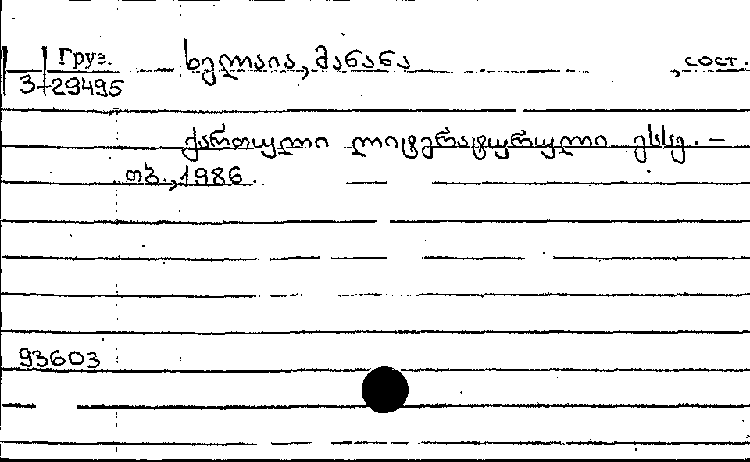 Груз.
3-29495
ხელაია, მანანა , сост.
ქართული ლიტერატურული ესსე. –
თბ., 1986.
93603